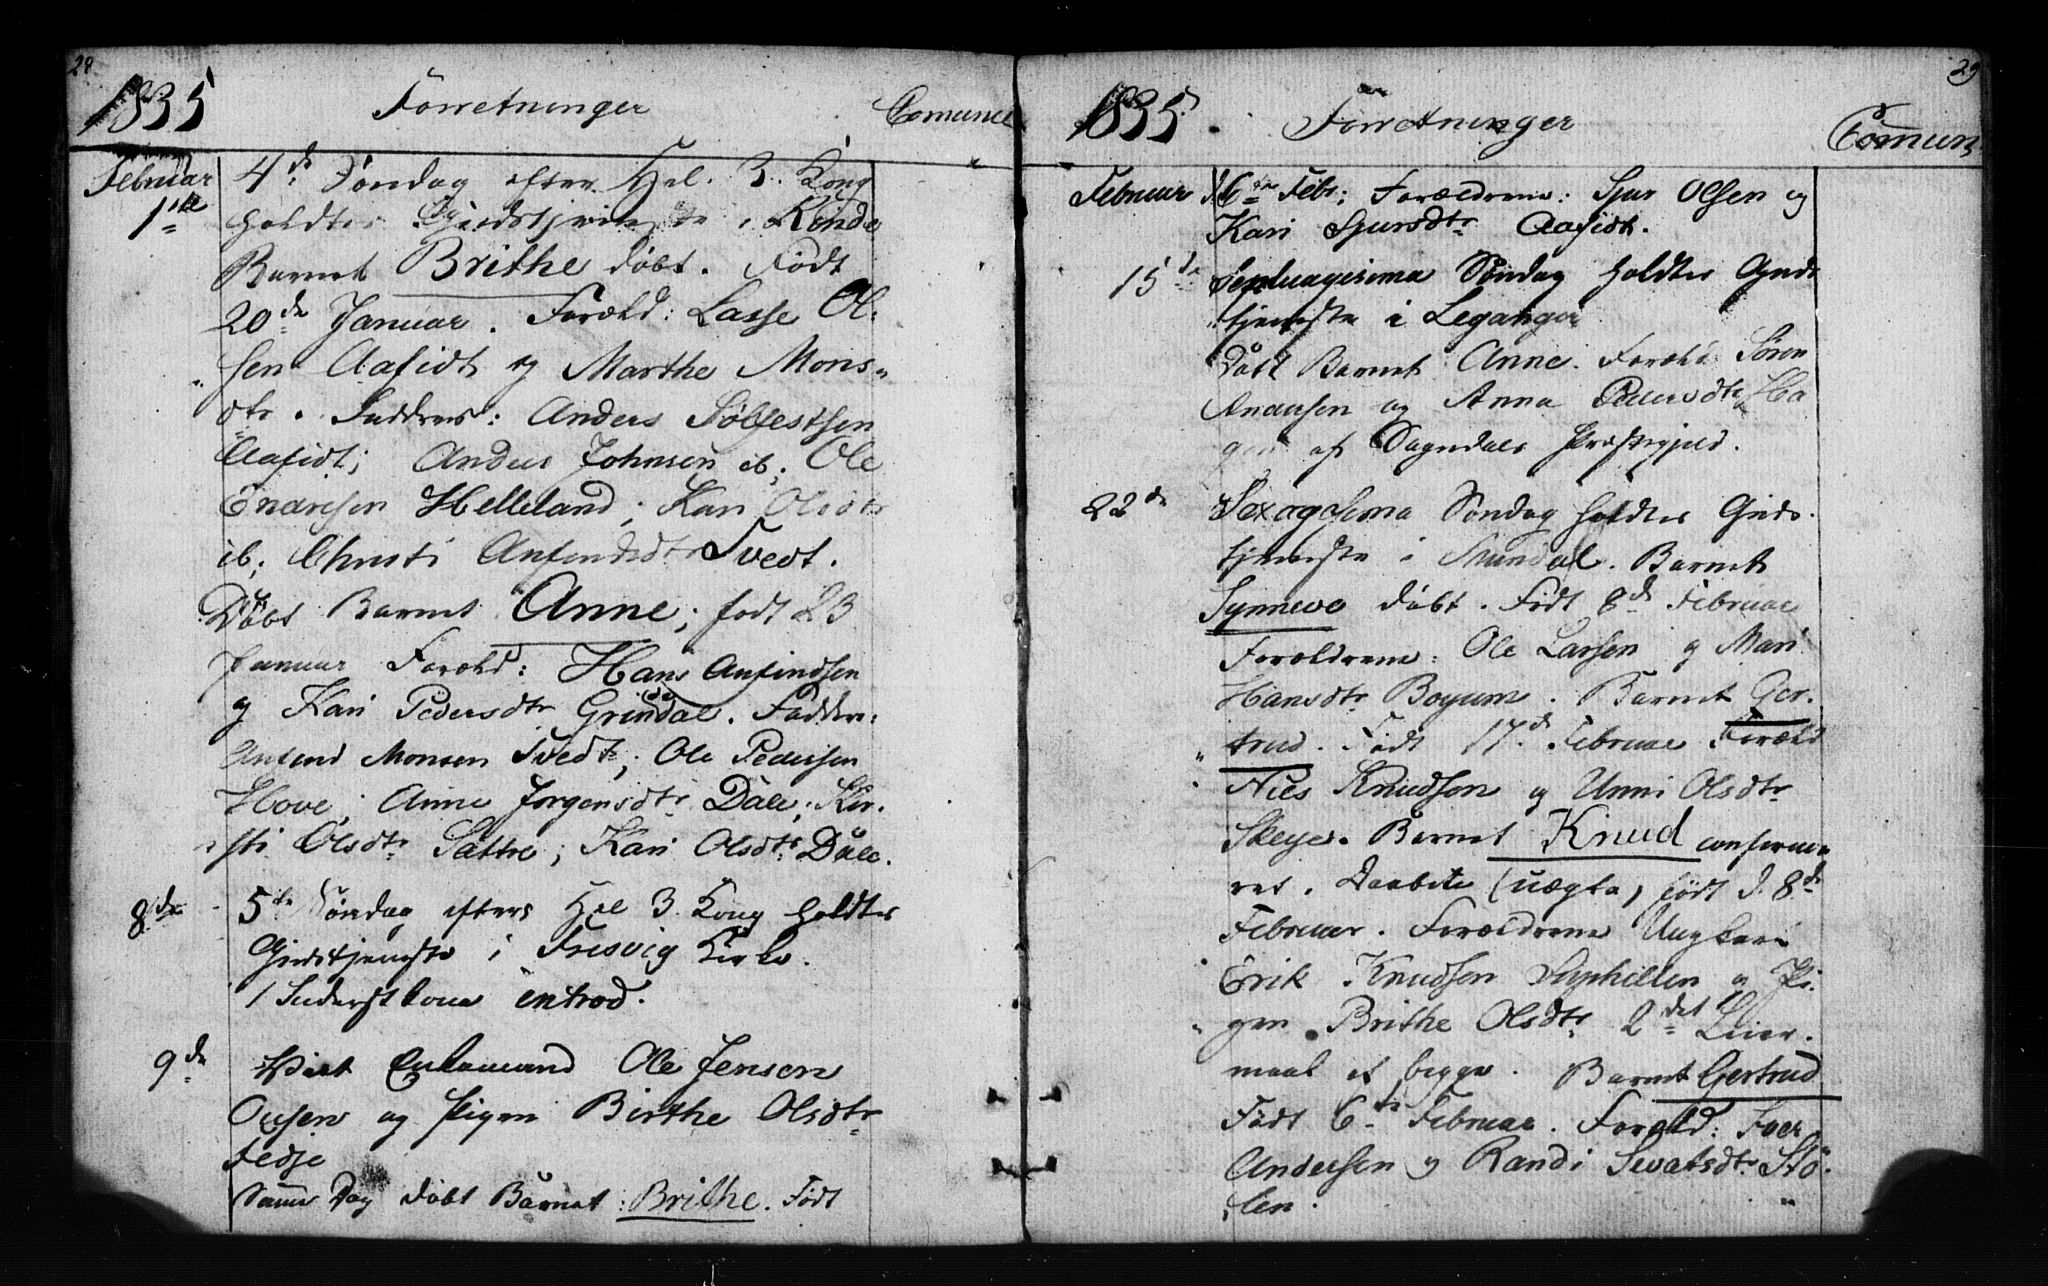 28
1835 Forretninger Comunic
Februar 4de Søndag efter Hel. 3. Kong
1ste holdtes Gudstjeneste i Rinde
Barnet Brithe døbt. Født
20de Januar. Foræld: Lasse Ol-
sen Aafedt og Marthe Mons-
dtr. Faddere: Anders Sølfestsen
Aafedt; Anders Johnsen ib; Ole
Endresen Helleland; Kari Olsdtr
ib; Christi Anfindsdtr Tvedt.
Døbt Barnet Anne; født 23
Januar Foræld: Hans Anfindsen
og Kari Pedersdtr Grindal. Faddere:
Anfind Monsen Tvedt; Ole Pedersen
Hove; Anne Jørgensdtr Dale; Kir-
sti Olsdtr Sættre; Kari Olsdtr Dale.
8de 5te Søndag efter Hel 3 Kong holdtes
Gudstjeneste i Fresvig Kirke.
1 Inderstkone introd.
9de Viet Enkemand Ole Jensen
og Pigen Birthe Olsdtr
Fedje
Samme Dag døbt Barnet: Brithe. Født
29
1835. Forretninger Comun
Februar 6te Febr; Forældrene: Sjur Olsen og
Kari Sjursdtr Aafedt.
15de Septuagesima Søndag holdtes Guds-
tjeneste i Leganger
Døbt Barnet Anne. Foræld Søren
Andersen og Anna Pedersdtr Ha
gen af Sogndals Præstegjeld.
22de Sexagesima Søndag holdtes Guds-
tjeneste i Mundal. Barnet
Synneve døbt. Født 8de Februar
Forældrene: Ole Larsen og Mari
Hansdtr Boyum. Barnet Ger-
trud. Født 17de Februar Foræld
Niels Knudsen og Unni Olsdtr
Skeye. Barnet Knud confirme-
ret. Daaben (uægte) født d. 8de
Februar. Forældrene Ungkarl
Erik Knudsen og Pi-
gen Brithe Olsdtr 2det Leier-
maal af begge. Barnet Gertrud
Født 6te Februar. Foræld: Iver
Andersen og Randi Sivatsdtr Stø-
len.